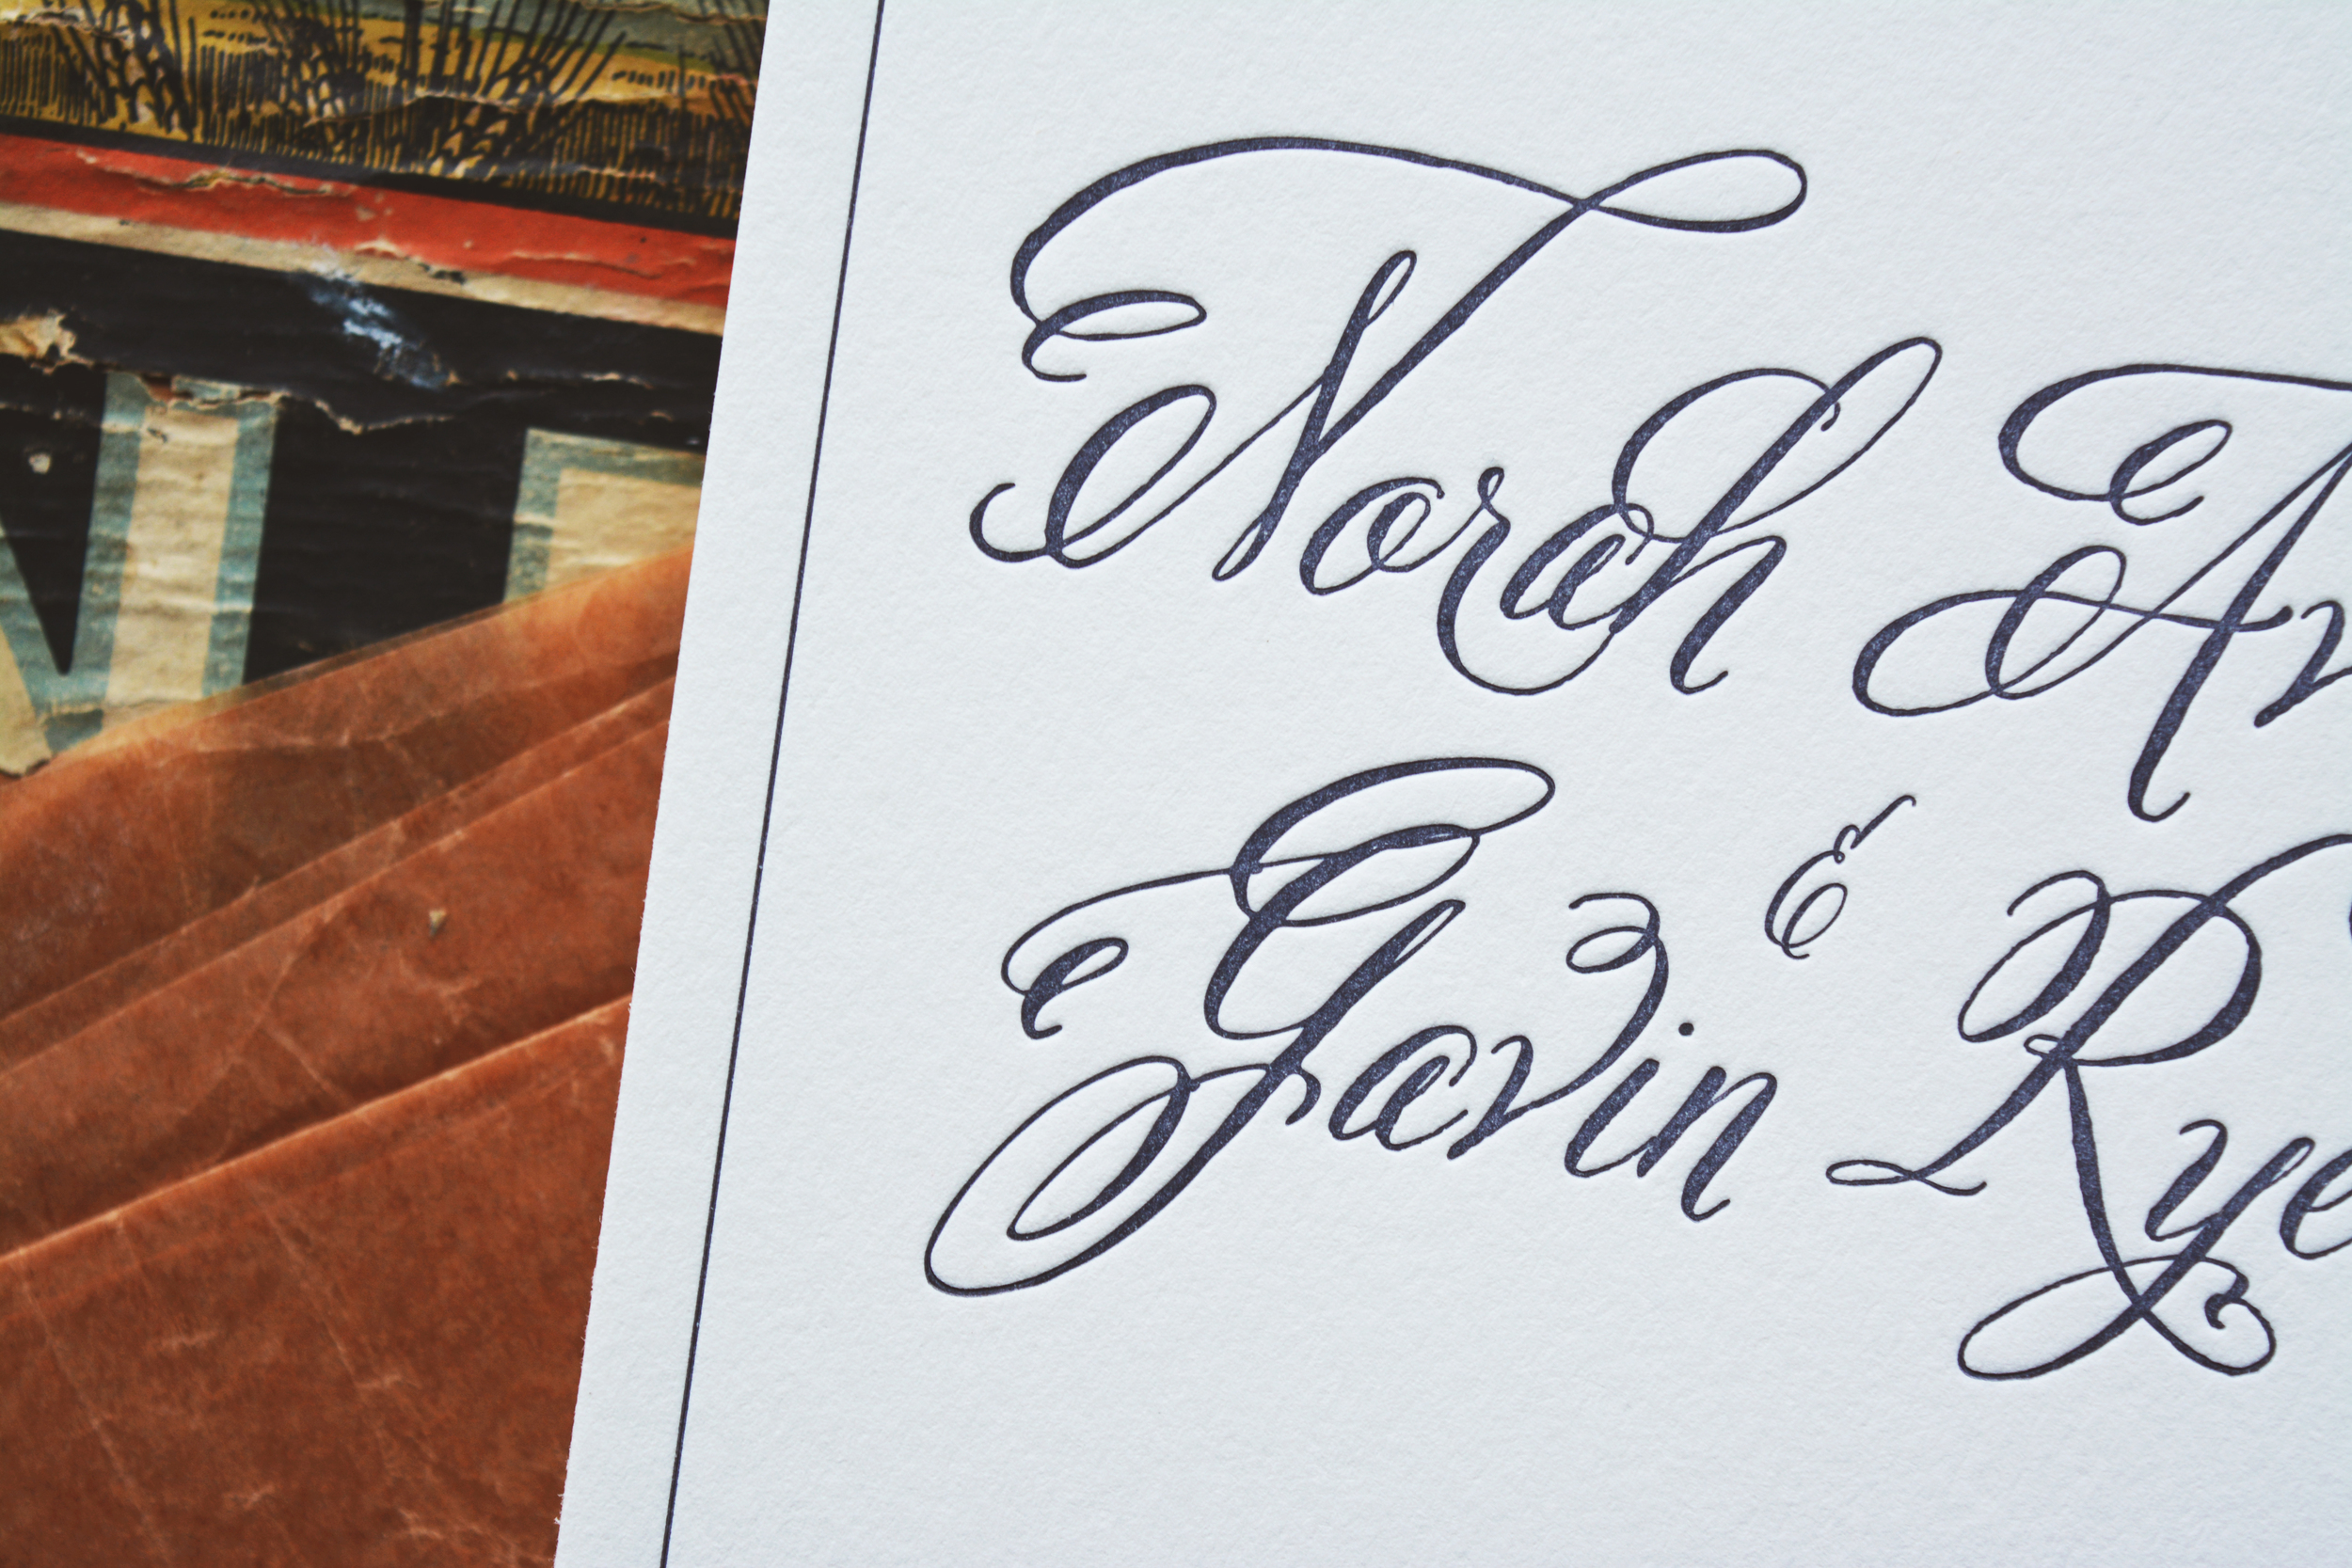 Norah An
&
Gavin Rye